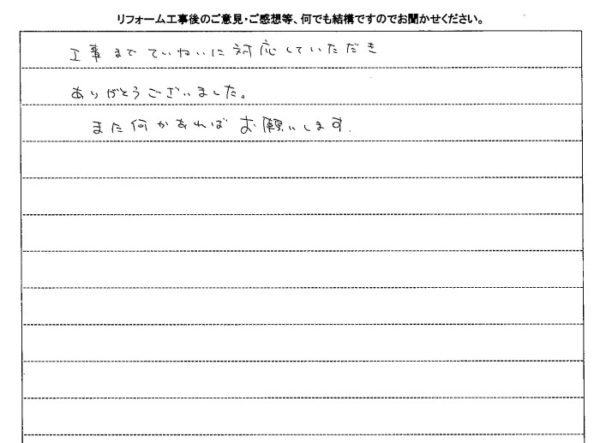 リフォーム工事後のご意見・ご感想等、何でも結構ですのでお聞かせください。
工事までていねいに対応していただき
ありがとうございました。
また何かあればお願いします.